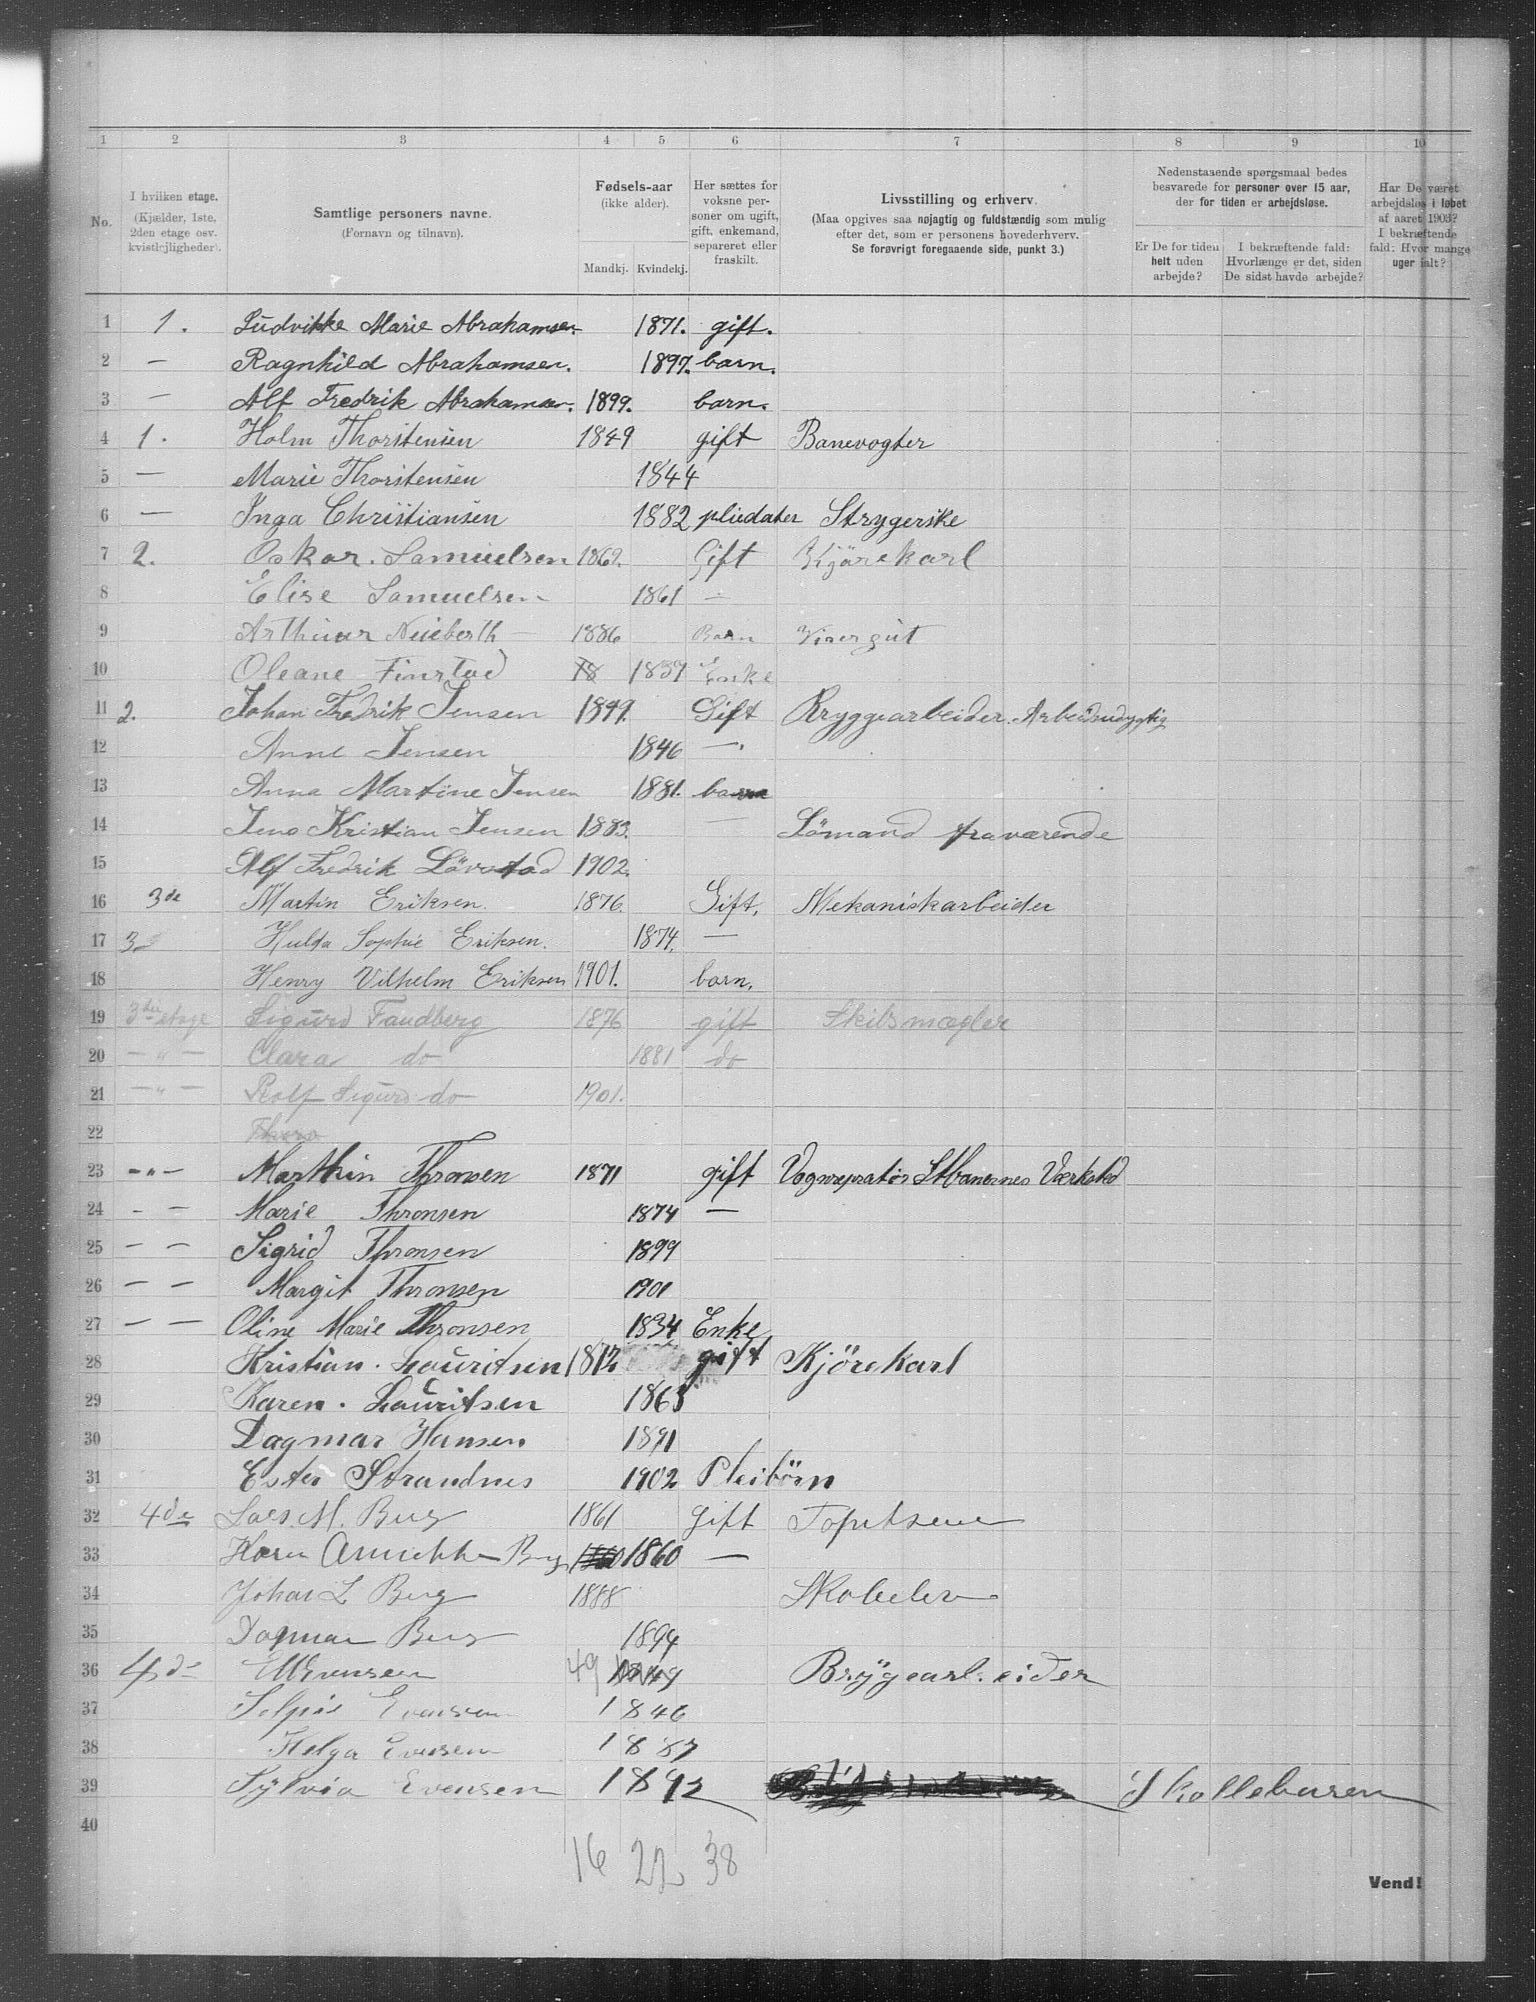 1 2 3 4 5 6 7 8 9 10
No.
I hvilken etage.
(Kjælder, 1ste, 2den etage osv. kvistlejligheder).
Samtlige personers navne.
(Fornavn og tilnavn).
Fødsels-aar
(ikke alder).
Mandkj. Kvindekj.
Her sættes for voksne personer om ugift, gift, enkemand, separeret eller fraskilt.
Livsstilling og erhverv.
(Maa opgives saa nøjagtig og fuldstændig som mulig efter det, som er personens hovederhverv.
Se forøvrigt foregaaende side, punkt 3.)
Nedenstaaende spørgsmaal bedes besvarede for personer over 15 aar, der for tiden er arbejdsløse.
Er De for tiden helt uden arbejde?
I bekræftende fald: Hvorlænge er det, siden De sidst havde arbejde?
Har De været arbejdsløs i løbet af aaret 1903? I bekræftende fald: Hvor mange uger ialt?
1 1. Ludvikke Marie Abrahamsen 1871. gift.
2 — Ragnhild Abrahamsen. 1897. barn.
3 — Alf Fredrik Abrahamsen. 1899. barn.
4 1. Holm Thorstensen 1849 gift Banevogter
5 — Marie Thorstensen 1844
6 — Inga Christiansen 1882 pliedater Strygerske
7 2. Oskar. Samuelsen 1862. Gift Kjørekarl
8 Elise Samuelsen 1861 —
9 Arthur Neuberth — 1886 Barn Visergut
10 Oleane Finstad 18 1837 Enke
11 2. Johan Fredrik Jensen 1849. Gift Bryggearbeider. Arbeidsudygtig
12 Anne Jensen 1846 —"
13 Anna Martine Jensen 1881. barn
14 Jens Kristian Jensen 1883. — Sömand fraværende
15 Alf Fredrik Lövstad 1902.
16 3de Martin Eriksen. 1876. Gift. Mekaniskarbeider
17 3 Hulda Sophie Eriksen. 1874. —
18 Henry Vilhelm Eriksen 1901. barn.
19 3die etage Sigurd Sandberg 1876 gift Skibsmægler
20 — " — Clara do 1881 do
21 — " — Rolf Sigurd do 1901.
22
23 — " — Marthin Thronsen 1871 gift Vognrepratør Stbanernes Værksted
24 — — Marie Thronsen 1874 —
25 — — Sigrid Thronsen 1899
26 — — Margit Thronsen 1901
27 — — Oline Marie Thronsen 1834 Enke
28 Kristian. Lauritsen 1872 gift Kjörekarl
29 Karen. Lauritsen 1863
30 Dagmar Hansen 1891
31 Ester Strandnes 1902 Pleibörn
32 4de Lars. M. Berg 1861 gift Tapetserer
33 Berg 1860 1860 —
34 Johan L Berg 1888
35 Dagmar Berg 1894
36 4de Evensen 49 1849 Brygearbeider
37 Evensen 1846
38 Helga Evensen 1887
39 Sylvia Evensen 1892 Skollebaren
40
16 22 38
Vend!